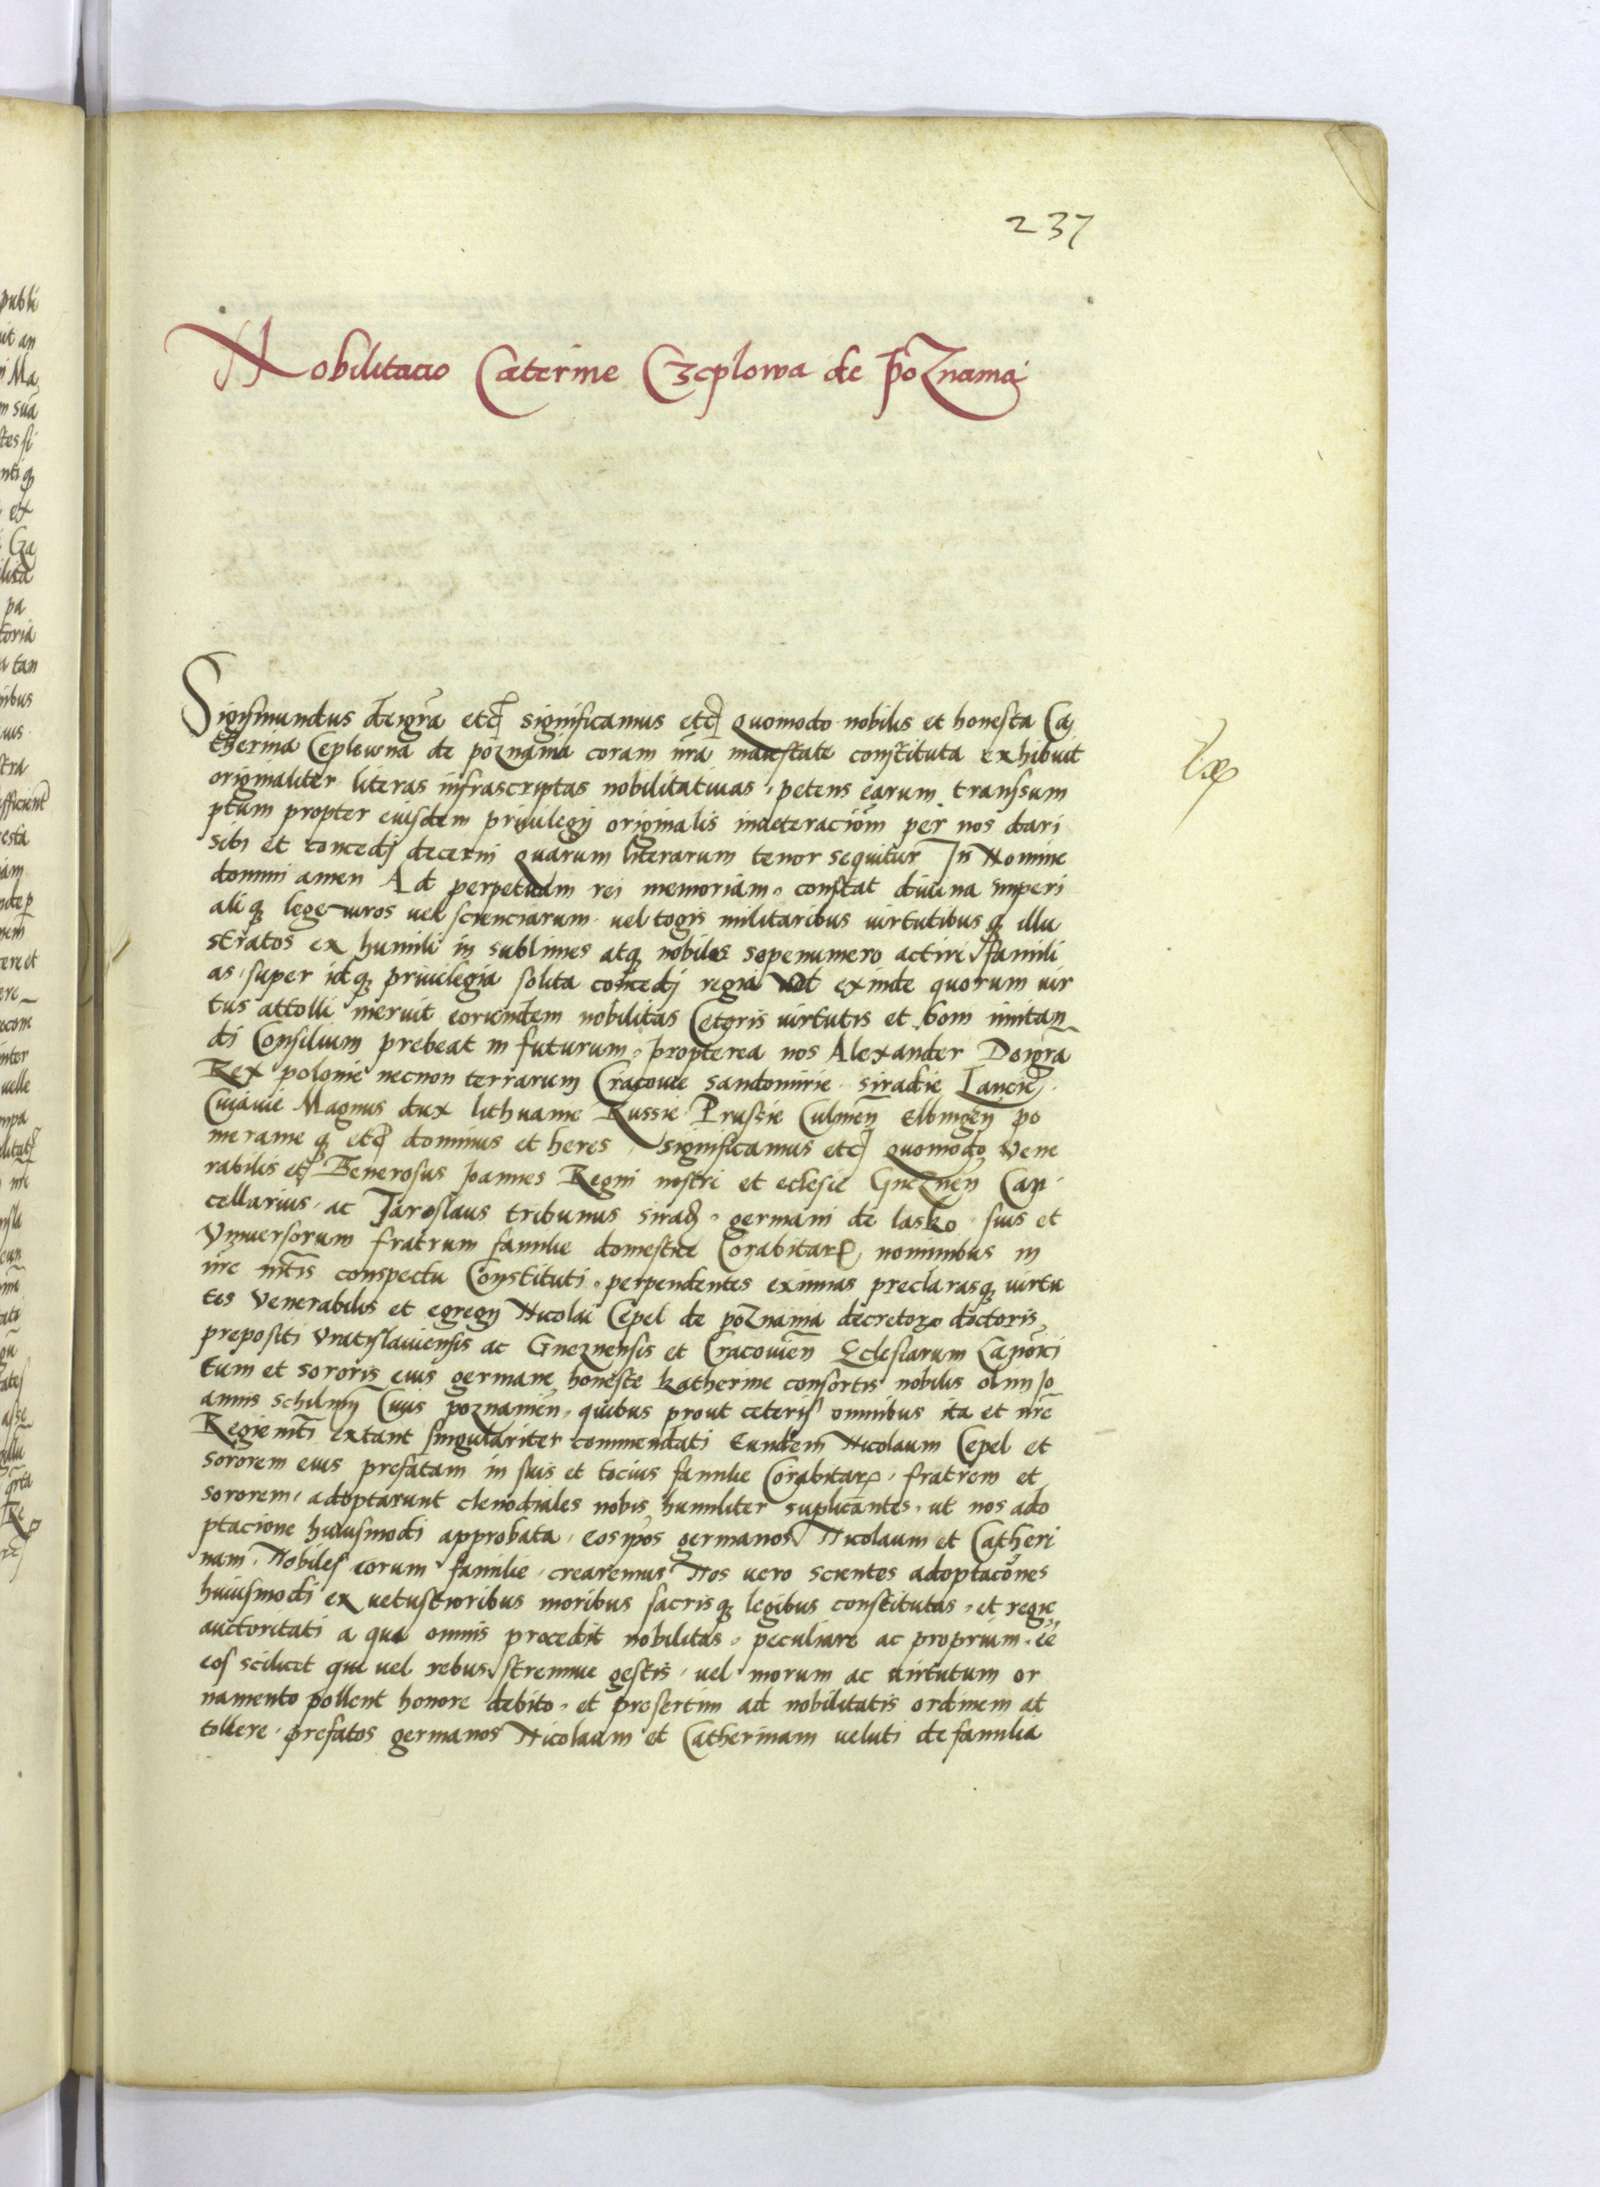 237
Nobilitatio Caterine Czeplowa de Poznania
Sigismundus deigra etc significamus etc quomodo nobilis et honesta Ca
therina Ceplowna de poznania coram nra maiestate constituta exhibuit
originaliter literas infrascriptas nobilitativas, petens earum transsum
ptum propter eiusdem privilegij originalis inveteracionem per nos dari
sibi et concedj decerni quarum literarum tenor sequitur In Nomine
domini amen Ad perpetuam rei memoriam. constat divina imperi
aliq lege viros vel scienciarum vel togis militaribus virtutibusq illu
stratos ex humili in sublimes atq nobiles sepenumero actiri famili
as, super idq privilegia solita concedj regia ut exinde quorum vir
tus attolli meruit eorundem nobilitas Ceteris virtutis et boni imitan
di Consilium prebeat in futurum. propterea nos Alexander Deigra
Rex polonie necnon terrarum Cracovie sandomirie siradie Lancicie
Cuiavie Magnus dux lithuanie Russie Prussie Culmen Elbingen po
meranieq etc dominus et heres, significamus etc quomodo Vene
rabilis et Generosus Joannes Regni nostri et eclesie Gneznen Can
cellarius, ac Jaroslaus tribunus sirad, germani de lasko, suis et
Universorum fratrum familie domestice Corabitar, nominibus in
nre mtis conspectu Constituti, perpendentes eximias preclarasq virtu
tes Venerabilis et egregij Nicolai Cepel de poznania decretor doctoris
prepositi Vratislaviensis ac Gneznensis et Cracovien Eclesiarum Canonici
tum et sororis eius germane honeste katherine consortis nobilis olim Jo
annis schiling Civis poznanien, quibus prout ceteris omnibus ita et nre
Regie mti extant singulariter commendati Eundem Nicolaum Cepel et
sororem eius prefatam in suis et tocius familie Corabitar, fratrem et
sororem, adoptarunt clenodiales nobis humiliter suplicantes, ut nos ado
ptacione huiusmodi approbata, eos ipos germanos Nicolaum et Catheri
nam, Nobiles eorum familie, crearemus Nos vero scientes adoptacones
huiusmodi ex vetustioribus moribus sacrisq legibus constitutas, et regie
auctoritati a qua omnis procedit nobilitas, peculiare ac proprium ee
eos scilicet qui vel rebus strennue gestis, vel morum ac virtutum or
namento pollent honore debito, et presertim ad nobilitatis ordinem at
tollere, prefatos germanos Nicolaum et Catherinam veluti de familia